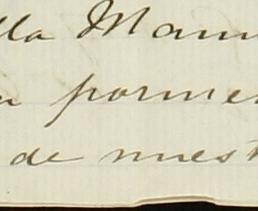 lla Manu
n porme
de nuest